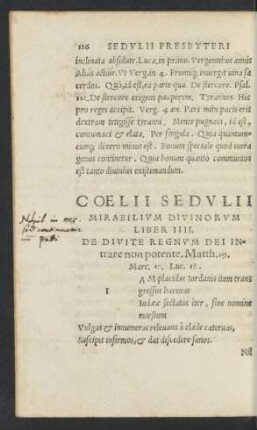 116 SEDVLII PRESBYTERI
inclinata absolute. Lucā, in primo Vergentibus annis
Aliàs actiue. Vt Verg. in 4. Frontiq; inuergit uina sa
cerdos. Quà, id est, eà parte qua. De stercore. Psal.
De stercore erigens pauperem. Tyrannos. Hic
pro reges accipit. Verg. Pars mihi pacis erit
dextram tetigisse tyranni. Mente pugnaci, id est,
& elate, Per singula. Quia quantum-
cunq; diuero minus est. Bonum speciale quod extra
genus continetur. Quia bonum quanto communius
est tanto diuinius existimandum.
COELII SEDVLII
MIRABILIVM DIVINORVM
LIBER IIII.
DE DIVITE REGNVM DEI IN-
trare non potente. Matth. 19.
Marc. 10. Luc. 18.
IAM placidas Iordanis item trans
gressus harenas
Iudææ sectatus iter, sine nomine
morbum
Vulgus & innumeras releuans à clade cateruas,
Suscipit infirmos, & dat discedere sanos.
Nil